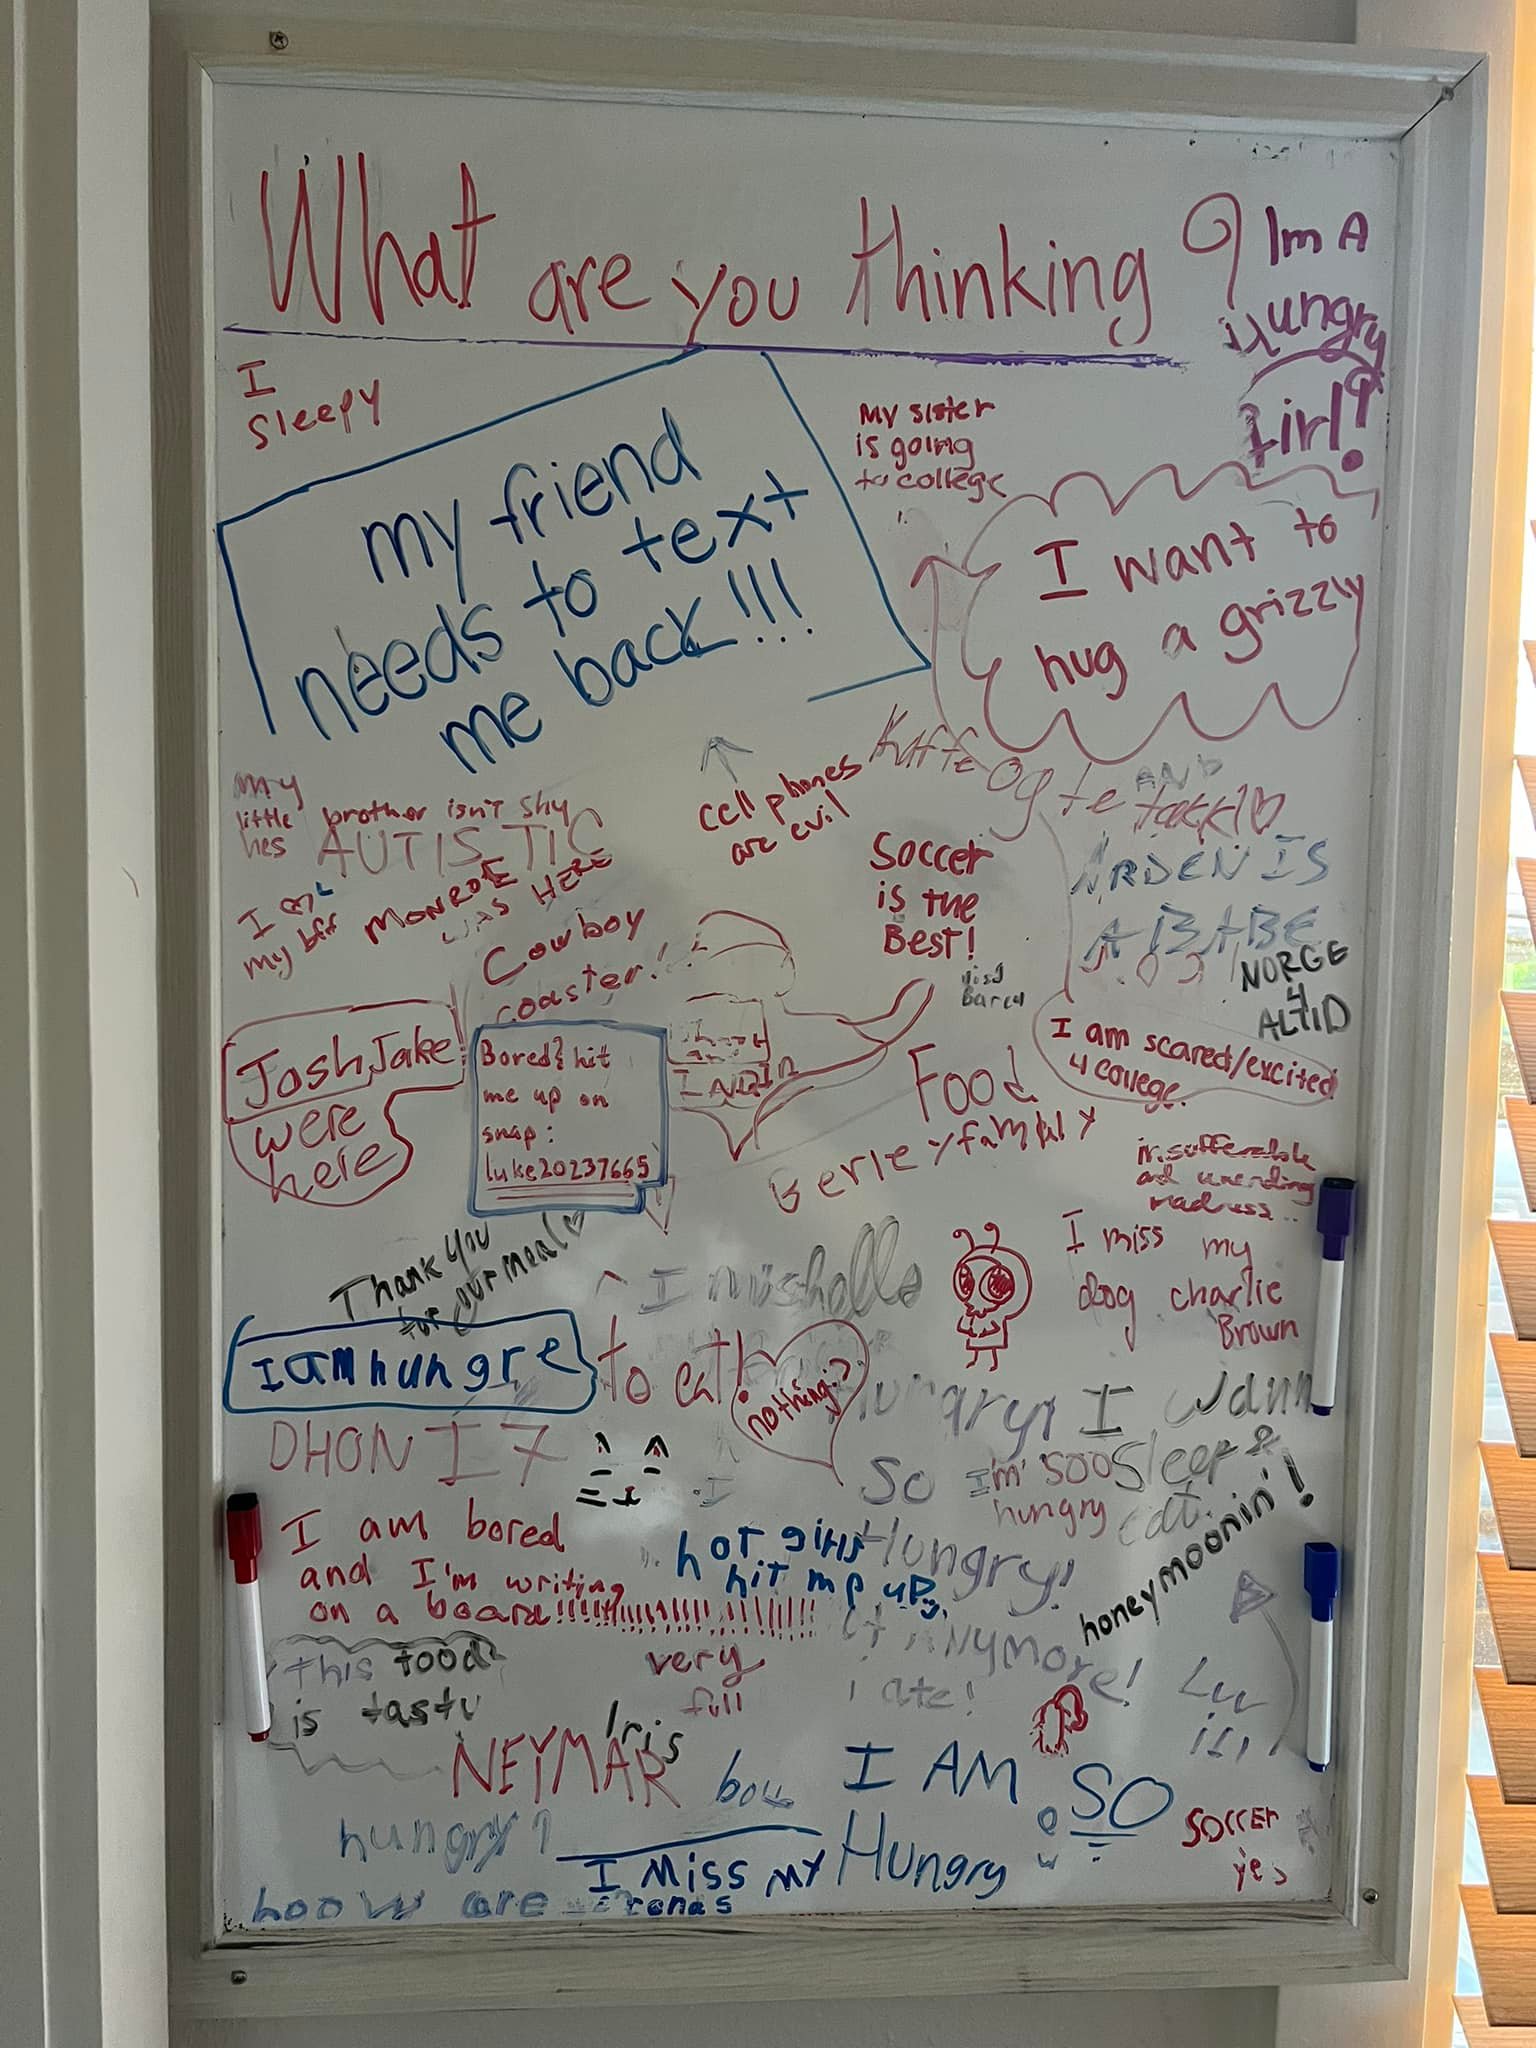 What are you thinking ?
Im A
Hungry
Girl!
I
sleepy
my friend
needs to text
me back!!!
My sister
is going
to college
I want to
hug a grizzly
My
little brother isn't shy
hes AUTISTIC
cell phones
are evil
AND
ARDEN IS
A BABE
NORGE
4
ALTID
Soccer
is the
Best!
visa
Barca
I am
my bff
MONROE
WAS HERE
Cowboy
coaster!
Josh Jake
were
here
Bored? hit
me up on
snap:
luke20237665
I am scared/excited
4 college
Food
Berley family
insufferable
and unending
madness..
Thank you
for our meal
I miss my
dog charlie
Brown
I am hungre
to eat!
nothing?
Hungry, I wann
Sleep &
eat.
DHONI 7
So
Hungry!
I'm soo
hungry
honeymoonin'!
I am bored
and I'm writing
on a board!!!!!!!!!!!!!!!!!!!!!!!
hot girls
hit me up
This food
is tasty
very
full
Anymore!
i ate!
Iris
NEYMAR
I AM SO
Hungry
Soccer
yes
hungry?
I Miss my
hoow are